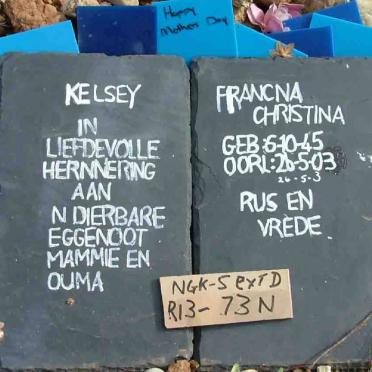 Happy
Mother Day
KELSEY
IN
LIEFDEVOLLE
HERNNERING
AAN
N DIERBARE
EGGENOOT
MAMMIE EN
OUMA
FRANCNA
CHRISTINA
GEB:6-10-45
OORL:26-5-03
26-5-3
RUS EN
VREDE
NGK-5 EXTD
R13-73N